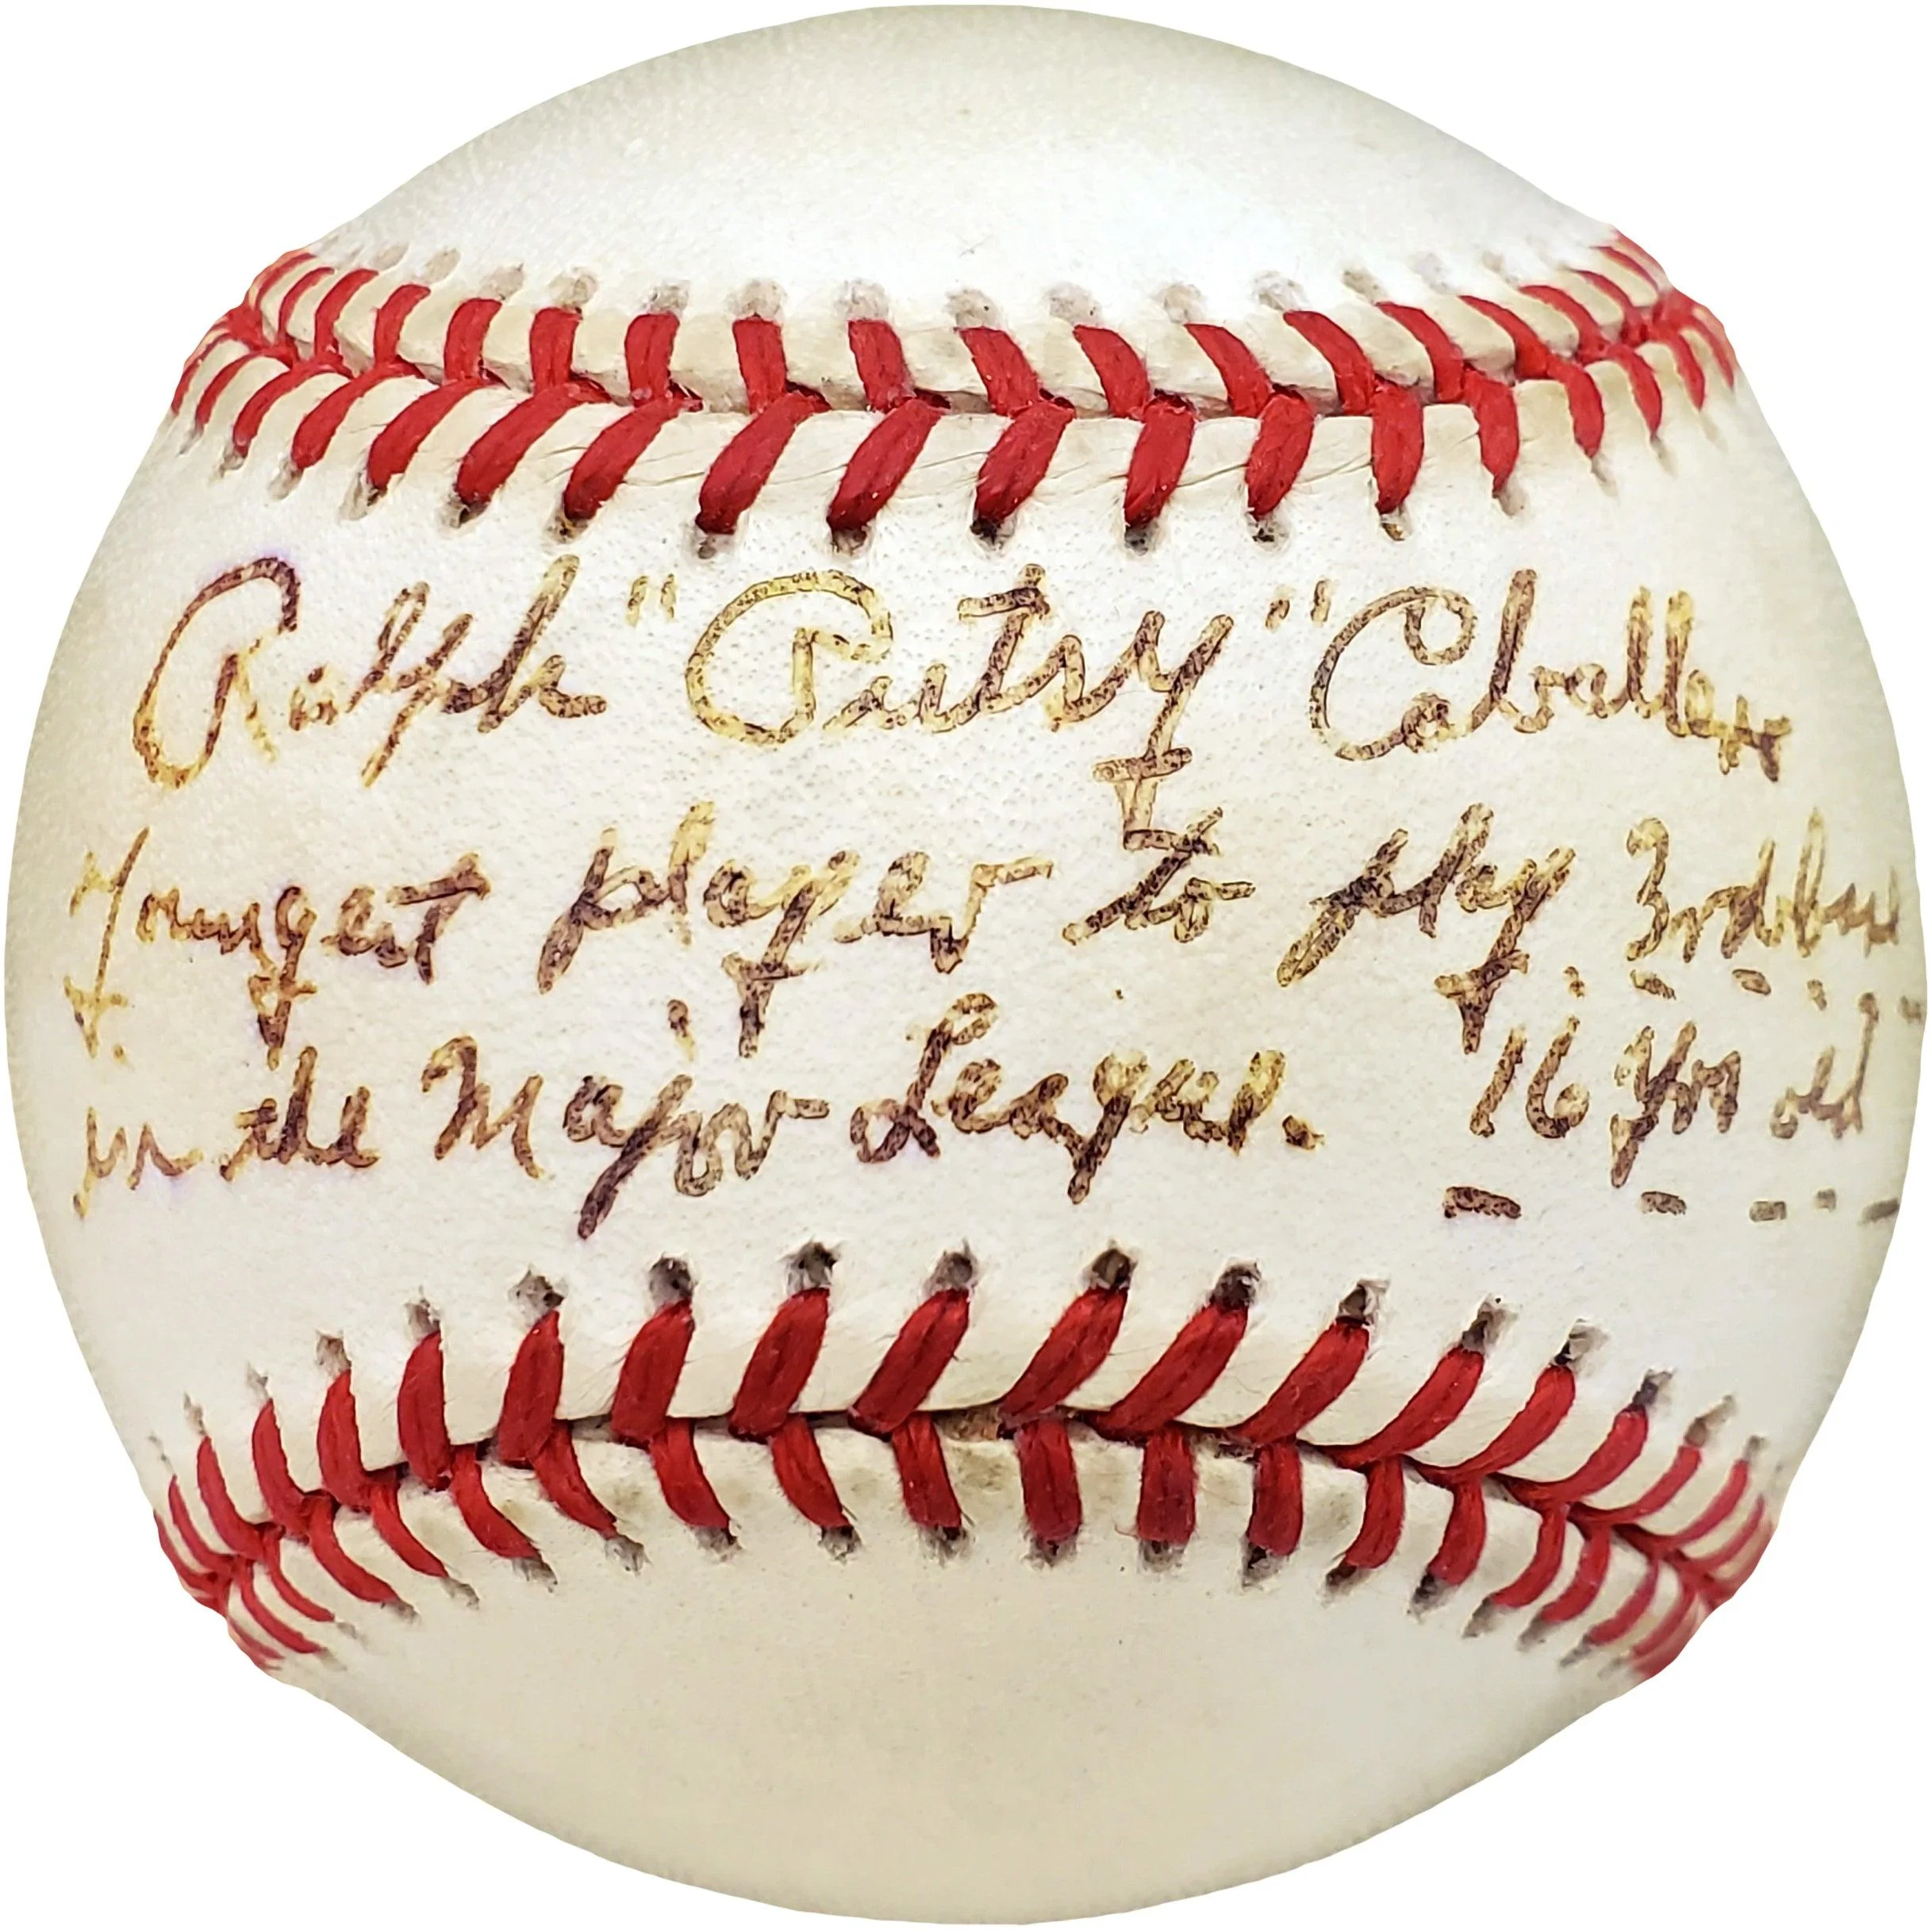 Ralph "Putsy" Caballero
Youngest player to play 3rd base
in the Major League. 16 yrs old